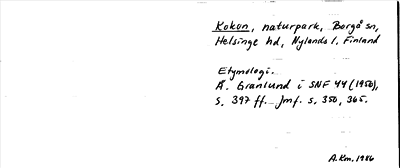 Kokon, naturpark, Borgå sn,
Helsinge hd, Nylands l, Finland
Etymologi.
Å. Granlund i SNF 44 (1956),
s. 397 ff. Jmf. s. 350, 365.
A.Km. 1986